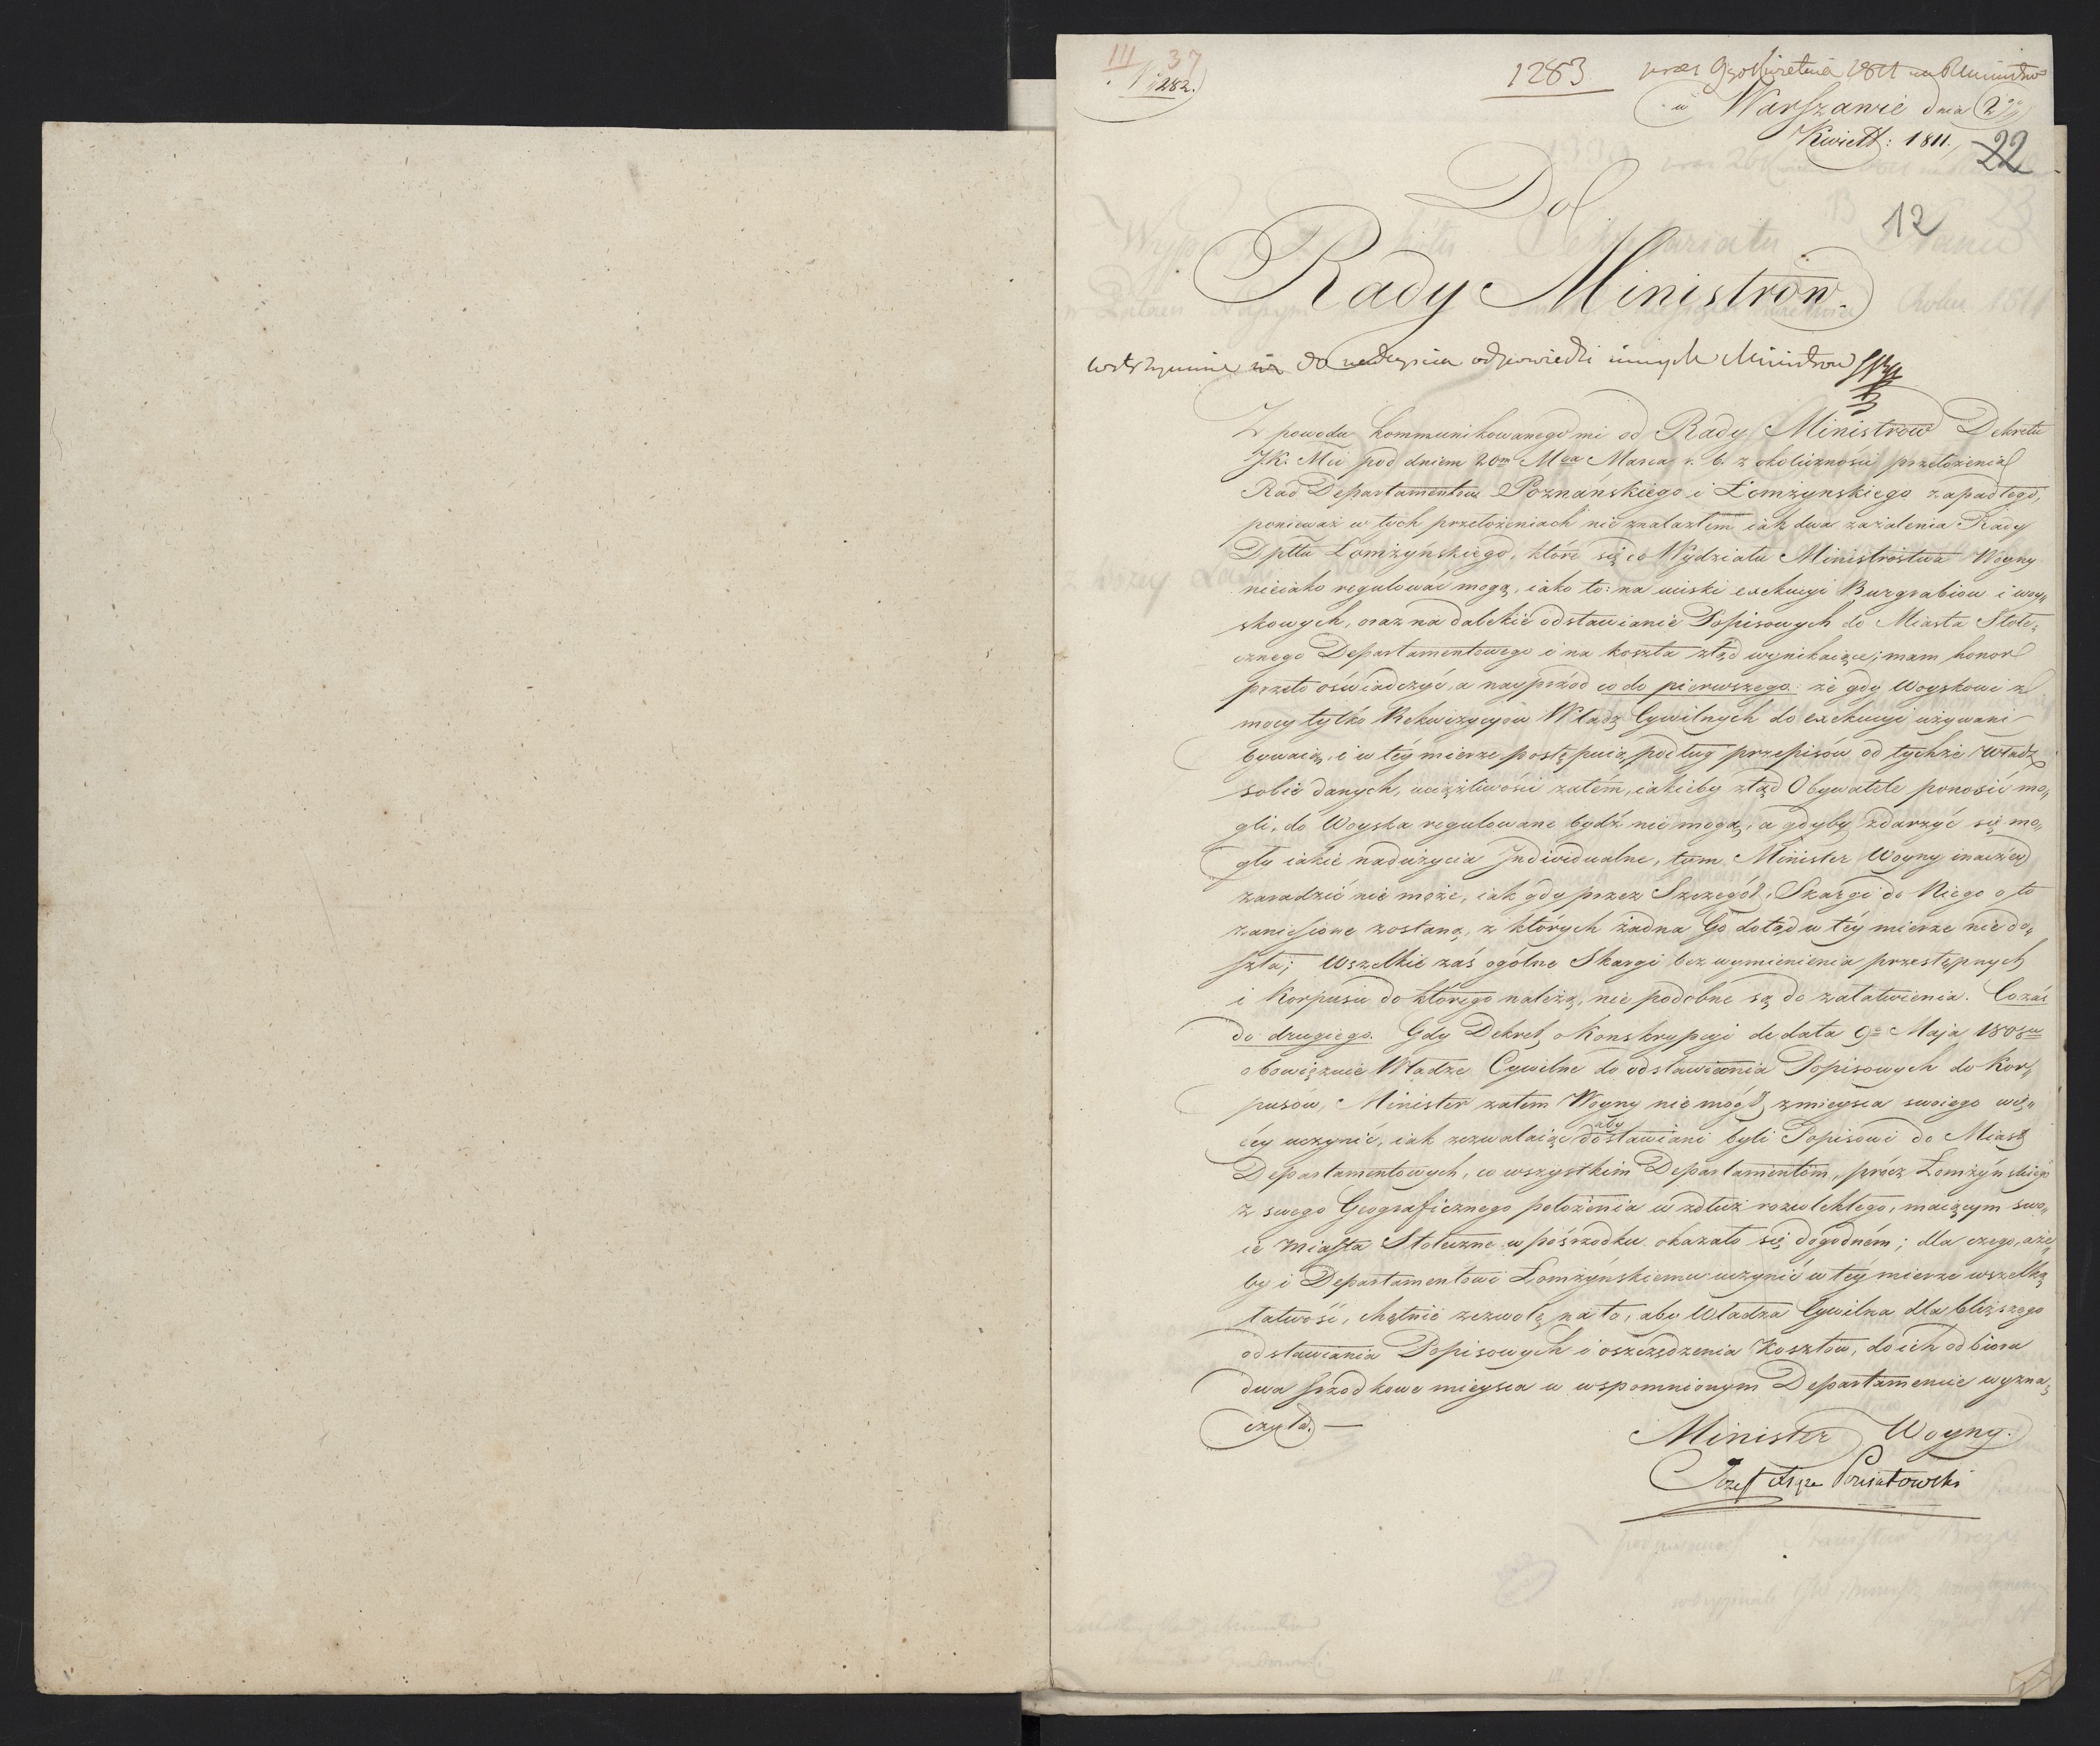 III 37
N 1282.
1283
w Warszawie dnia 2go
Kwiet: 1811.
22
12
Do
Rady Ministrow.
wstrzymane do nadeyscia odpowiedzi innych Ministrow
Z powodu kommunikowanego mi od Rady Ministrow Dekretu
J.K. Mci pod dniem 20m Mca Marca r. b. z okoliczności przełożenia
Rad Departamentow Poznańskiego i Łomżynskiego zapadłego,
ponieważ w tych przełożeniach nie znalazłem iak dwa zażalenia Rady
Dpttu Łomżyńskiego, które się do Wydziału Ministrostwa Woyny
nieiako regulować mogą, iako to: na uciski exekucyi Burgrabiow i woy„
skowych, oraz na dalekie odstawianie Popisowych do Miasta Stołe„
cznego Departamentowego i na koszta ztąd wynikaiące; mam honor
przeto oświadczyć, a nayprzód co do pierwszego: że gdy Woyskowi z
mocy tylko Rekwizycyów Władz Cywilnych do exekucyi używani
bywaią, i w téy mierze postępuią podług przepisów od tychże Władz
sobie danych, uciążliwości zatém, iakieby ztąd Obywatele ponosić mo„
gli, do Woyska regulowane bydź nie mogą, a gdyby zdarzyć się mo„
gły iakie nadużycia Jndividualne, tym Minister Woyny inaczéy
zaradzić nie może, iak gdy przez Szczegół: Skargi do Niego o to
zaniesione zostaną, z których żadna Go dotąd w téy mierze nie do„
szła; Wszelkie zaś ogólne Skargi bez wymienienia przestępnych
i Korpusu do którego należą, nie podobne są do załatwienia. Co zaś
do drugiego. Gdy Dekret o Konskrypcyi de data 9o Maja 1808u
obowiązuie Władze Cywilne do odstawienia Popisowych do Kor„
pusow, Minister zatem Woyny nie mógł z mieysca swoiego wię„
céy uczynić, iak zezwalaiąc aby dostawiani byli Popisowi do Miast
Departamentowych, co wszystkim Departamentom, prócz Łomżyńskiego
z swego Geograficznego położenia w zdłuż rozwlekłego, maiącym swo„
ie Miasta Stołeczne w pośrzodku okazało się dogodném; dla czego, aże„
by i Departamentowi Łomżyńskiemu uczynić w téy mierze wszelką
łatwość, chętnie zezwolę na to, aby Władza Cywilna dla bliższego
odstawiania Popisowych i oszczędzenia Kosztow, do ich odbioru
dwa śrzodkowe mieysca w wspomnionym Departamencie wyzna„
czyła. —
Minister Woyny.
Józef Xsże Poniatowski